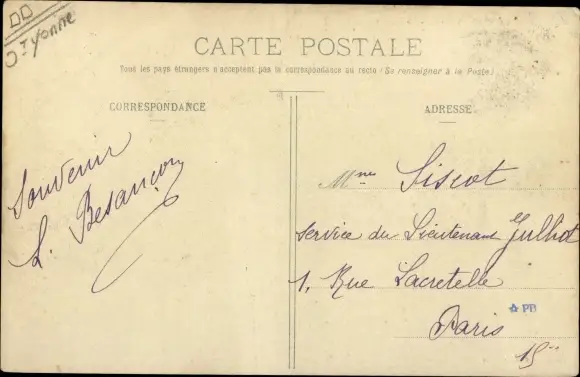 St Yonne
CARTE POSTALE
Tous les pays étrangers n'acceptent pas la correspondance au recto (Se renseigner à la Poste)
CORRESPONDANCE
ADRESSE
Souvenir
L. Besançon
Mme Siscot
Service du Lieutenant Gulhot
1, Rue Lacretelle
Paris
PB
15